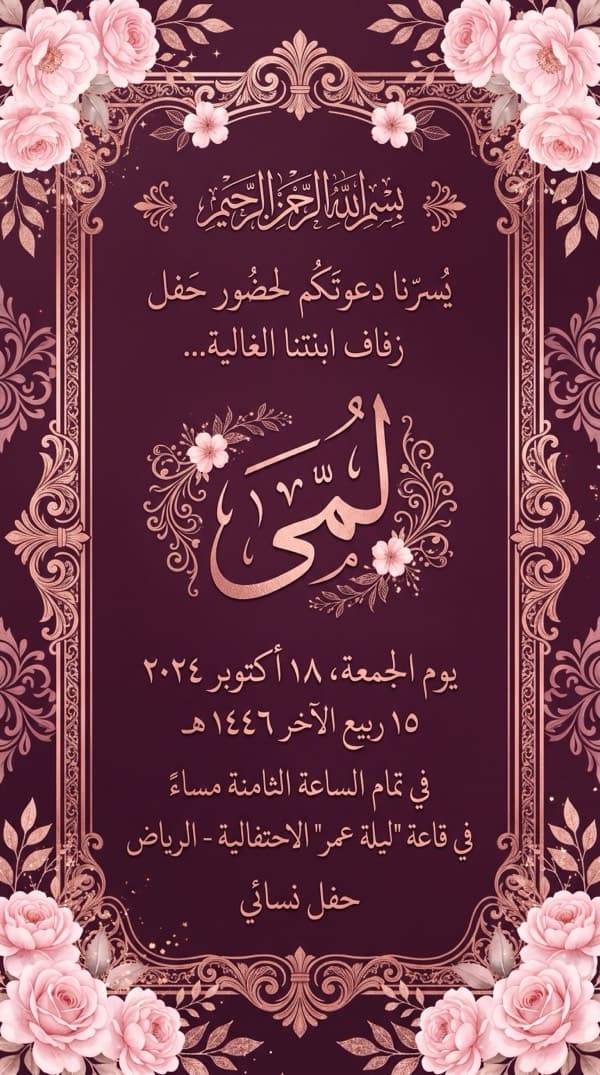 بِسْمِ اللَّهِ الرَّحْمَنِ الرَّحِيمِ
يُسرّنا دعوتَكُم لحضُور حَفل
زفاف ابنتنا الغالية...
لُمّىَ
يوم الجمعة، ١٨ أكتوبر ٢٠٢٤
١٥ ربيع الآخر ١٤٤٦هـ
في تمام الساعة الثامنة مساءً
في قاعة "ليلة عمر" الاحتفالية - الرياض
حفل نسائي